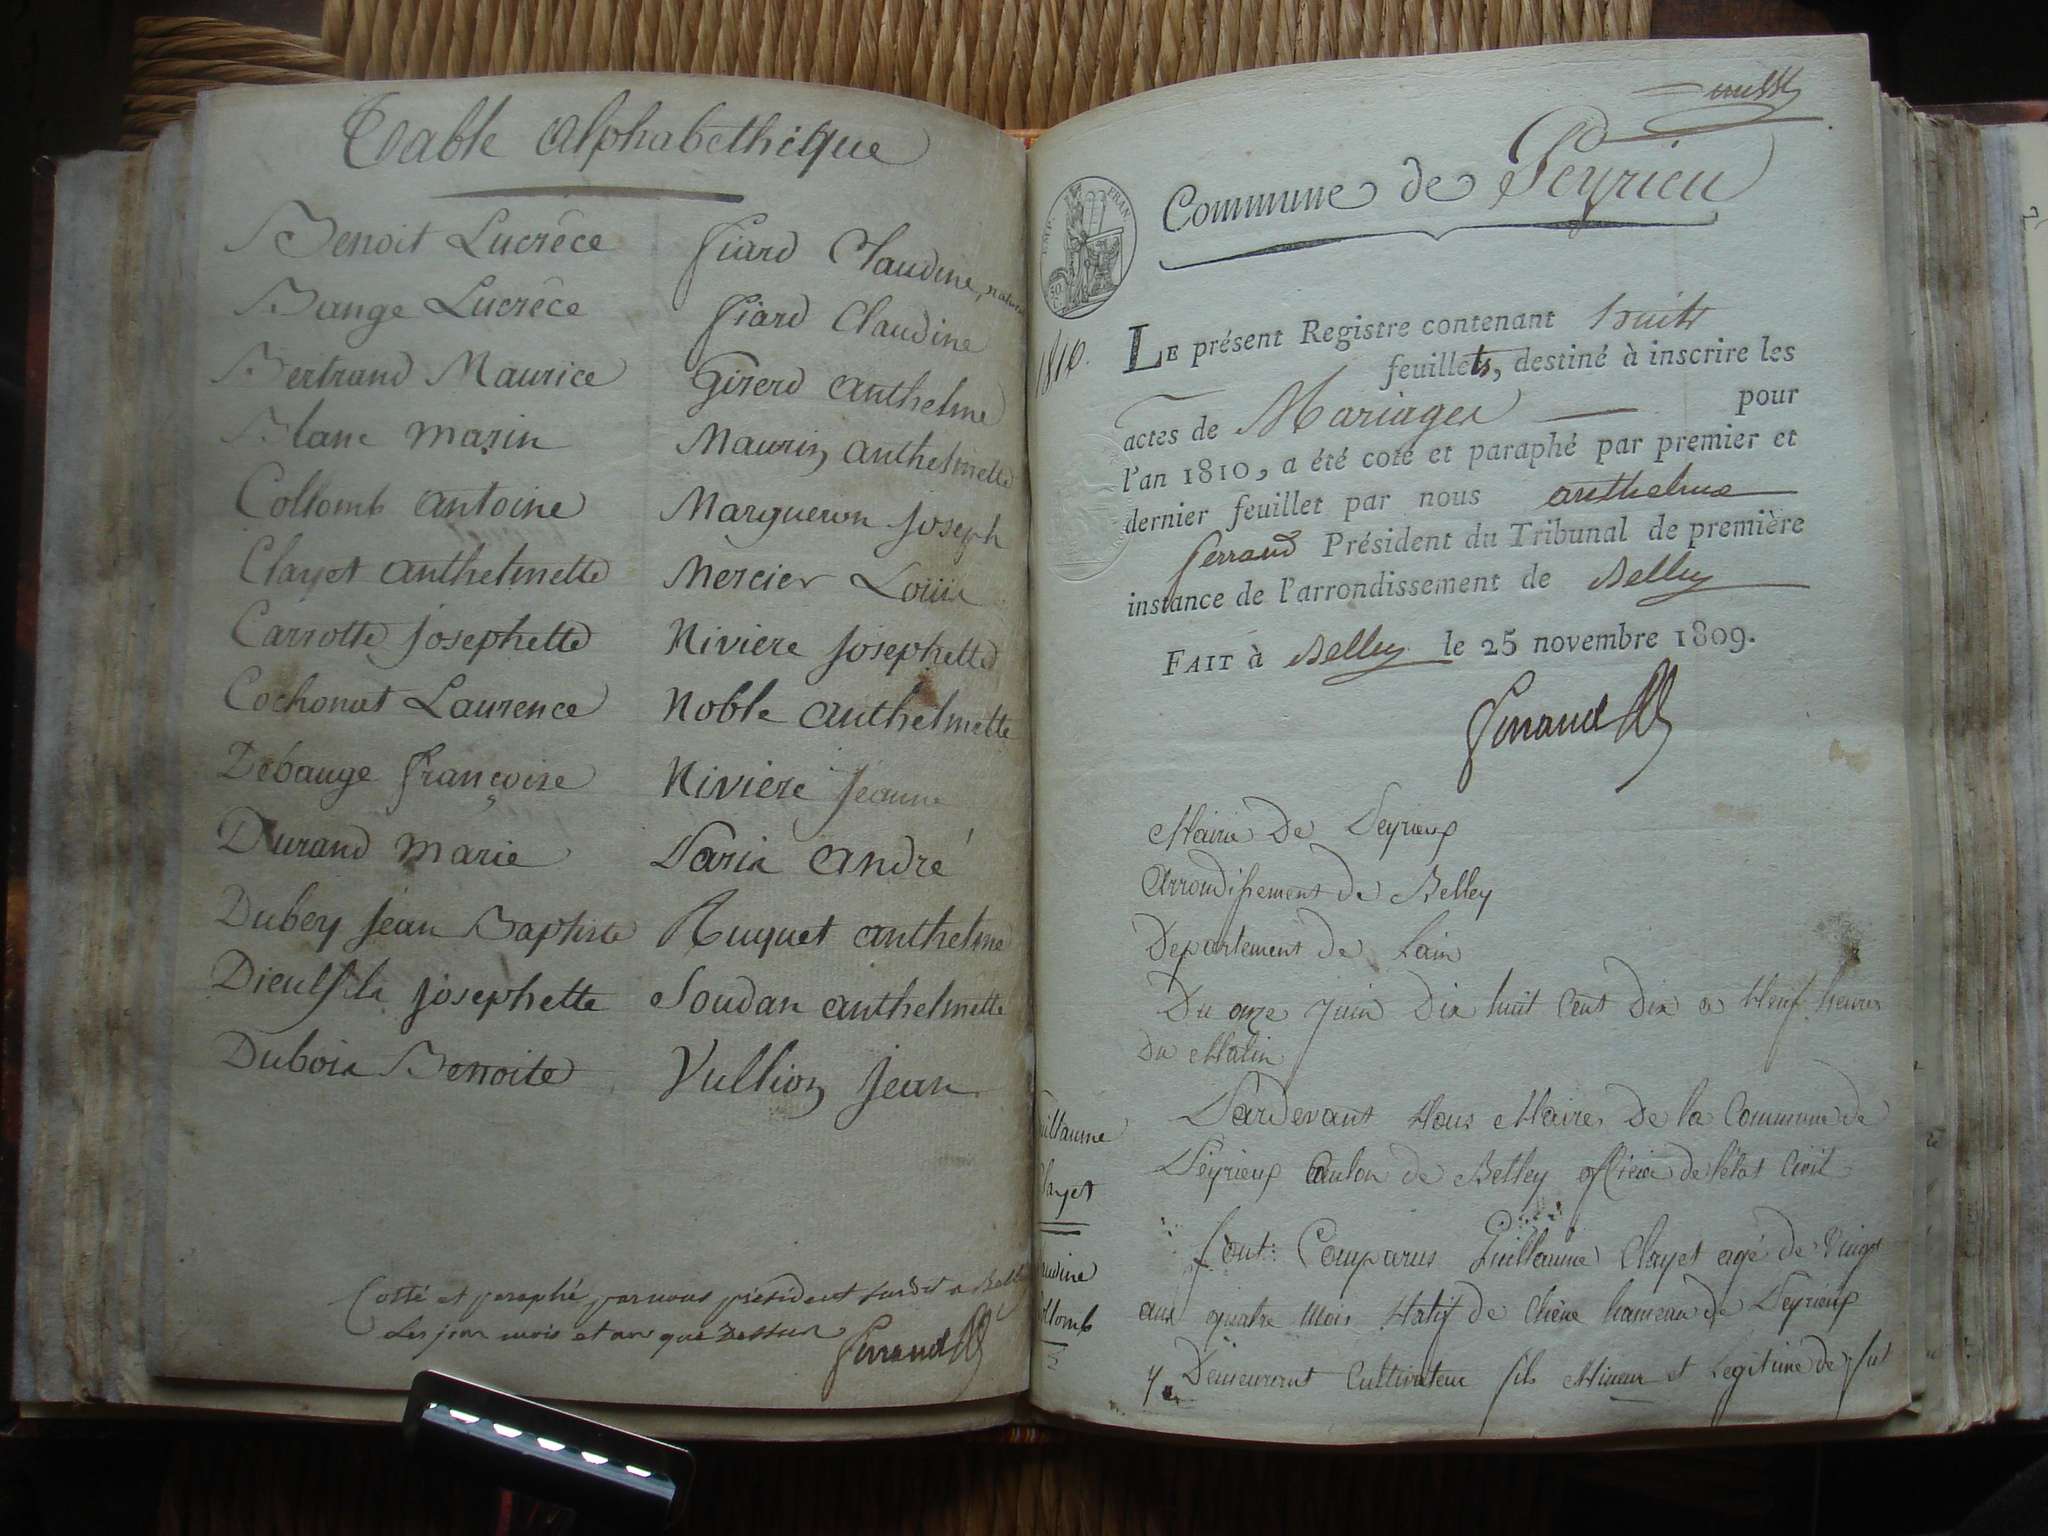 Table Alphabethique
Benoit Lucrèce
Bange Lucrèce
Bertrand Maurice
Blanc Marin
Collomb Antoine
Clayet Anthelmette
Carrotte Josephette
Cochonat Laurence
Debauge Françoise
Durand Marie
Dubey Jean Baptiste
Dieulfils Josephette
Dubois Benoite
Fiard Claudine,
Fiard Claudine
Girerd Anthelme
Maurin Anthelmette
Margueron Joseph
Mercier Louis
Niviere Josephette
Noble Anthelmette
Niviere Jeanne
Paris André
Ruquet Anthelme
Soudan Anthelmette
Vullion Jean
Cotté et paraphé par nous président susdit a Belley
Les jour mois et an que dessus Ferrand
Commune de Peyrieu
EMP. FRAN
1810.
Le présent Registre contenant huit
feuillets, destiné à inscrire les
actes de Mariages pour
l'an 1810, a été coté et paraphé par premier et
dernier feuillet par nous anthelme
ferrand Président du Tribunal de première
instance de l'arrondissement de Belley
Fait à Belley le 25 novembre 1809.
Ferrand
Mairie De Peyrieux
Arrondissement de Belley
Departement de Lain
Du onze Juin Dix huit Cent Dix a Neuf heures
Du Matin
Pardevant Nous Maire De la Commune de
Peyrieux Canton de Belley officier de l'état Civil
Sont Comparus Guillaume Clayet agé de Vingt
ans quatre Mois Natif de Chêne hameau de Peyrieux
y Demeurant Cultivateur fils Mineur et Legitime de fut
illaume
layet
audine
ollomb